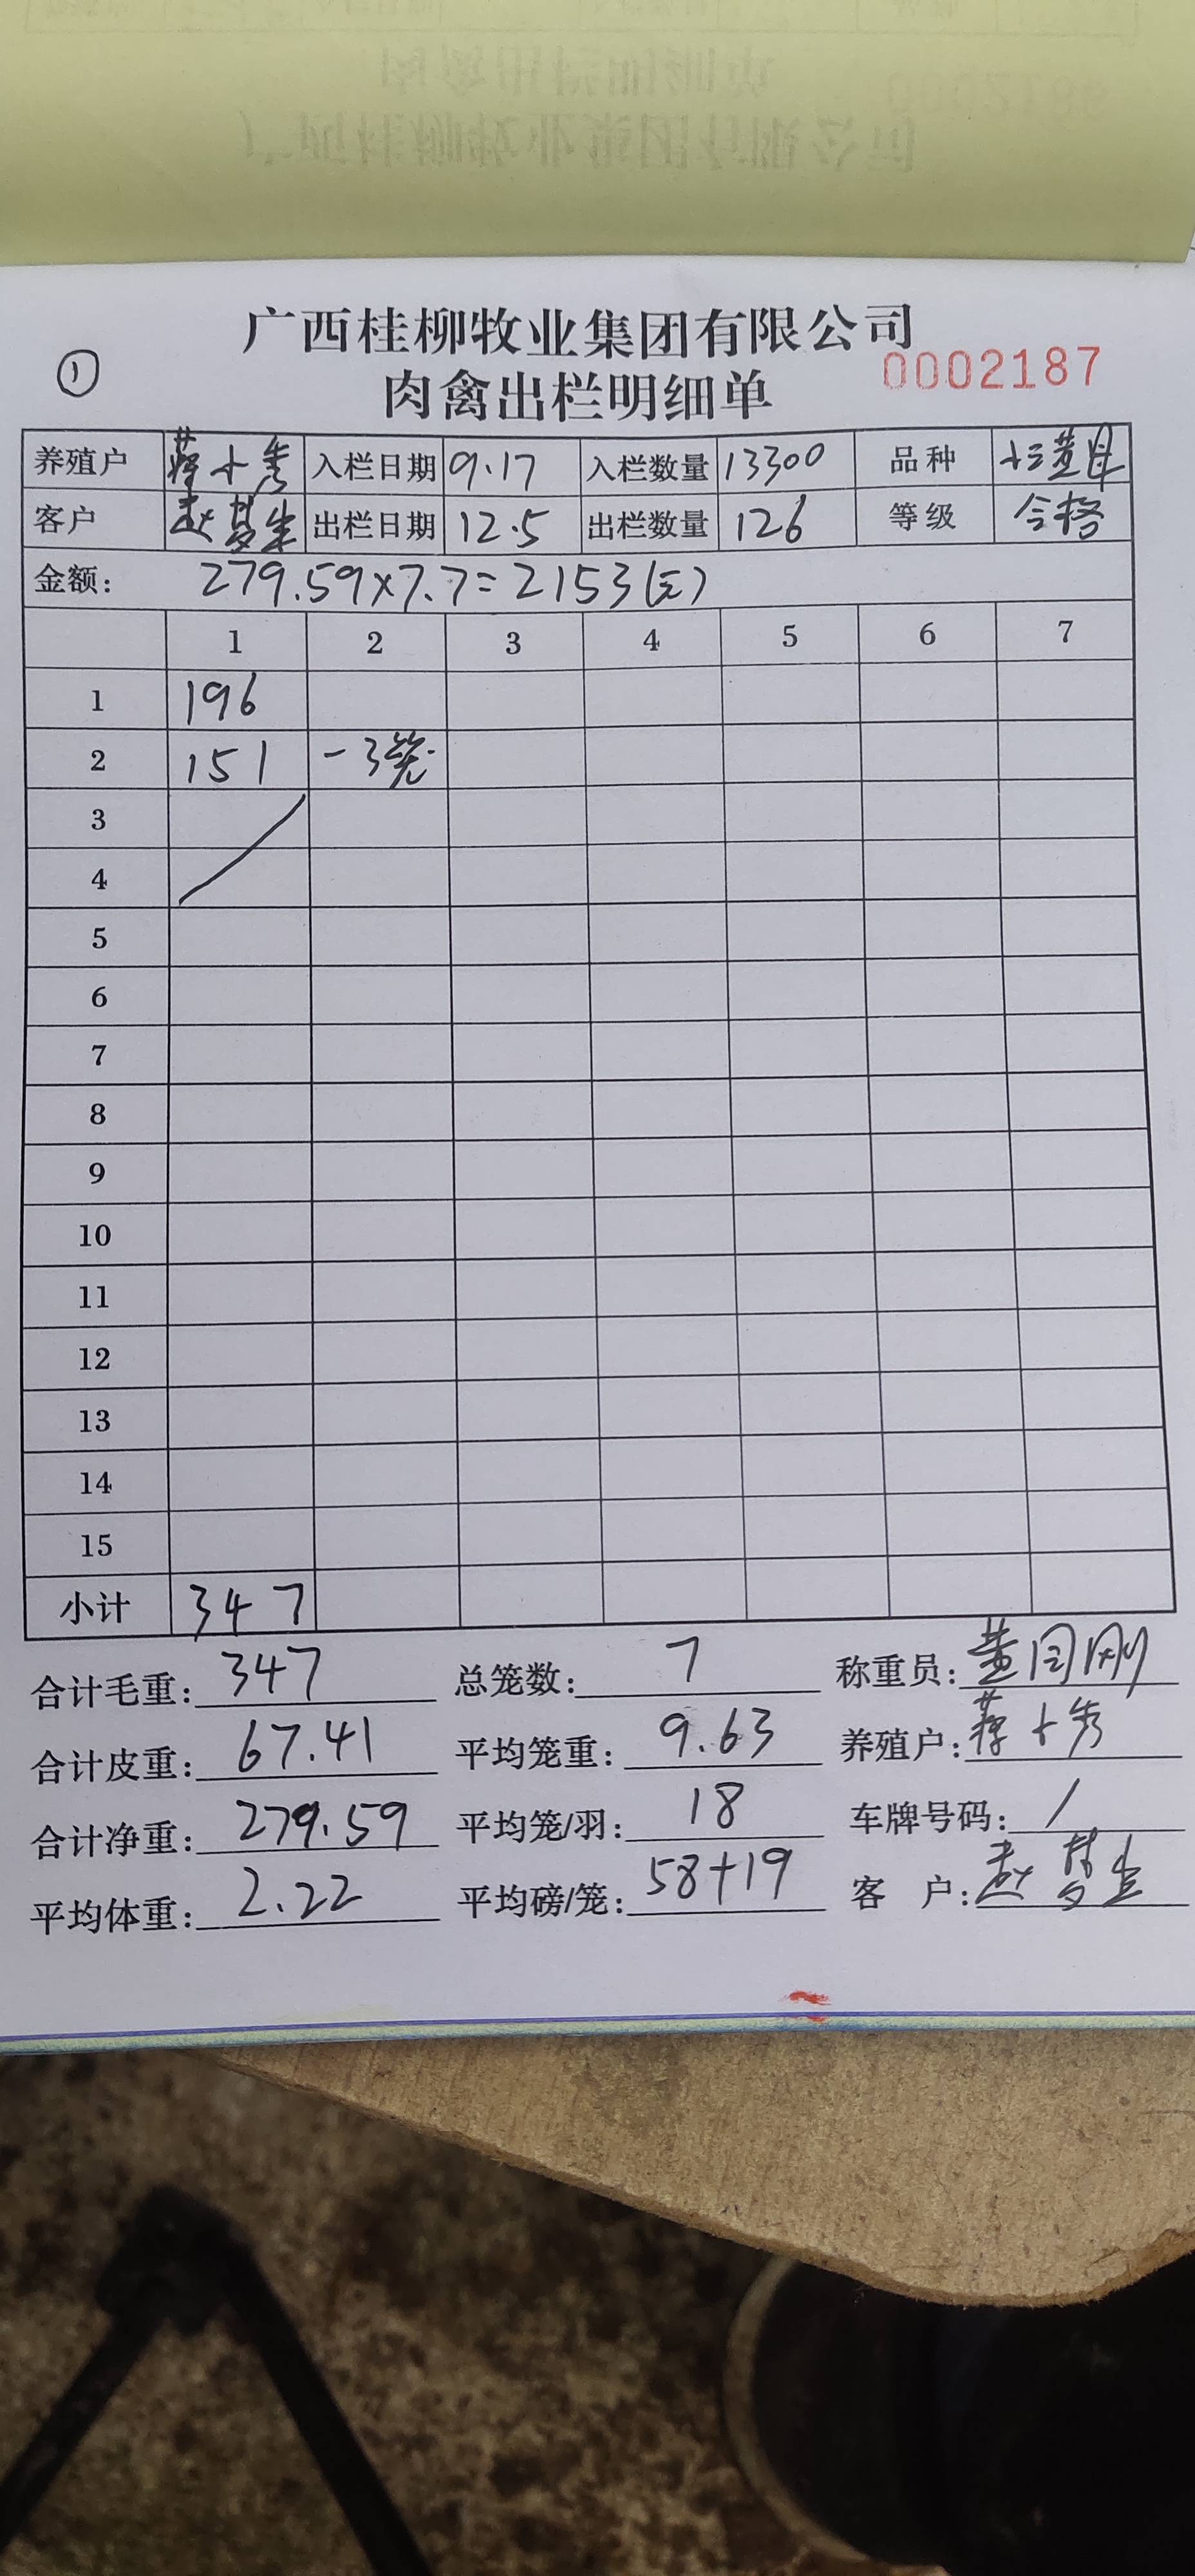 广西桂柳牧业集团有限公司
① 肉禽出栏明细单 0002187
养殖户 蒋小秀 入栏日期 9.17 入栏数量 13300 品种
客户 赵梦生 出栏日期 12.5 出栏数量 126 等级 合格
金额: 279.59×7.7=2153(元)
1 2 3 4 5 6 7
1 196
2 151 -3笼
3
4
5
6
7
8
9
10
11
12
13
14
15
小计 347
合计毛重: 347 总笼数: 7 称重员:
合计皮重: 67.41 平均笼重: 9.63 养殖户: 蒋小秀
合计净重: 279.59 平均笼/羽: 18 车牌号码: /
平均体重: 2.22 平均磅/笼: 58+19 客 户: 赵梦生